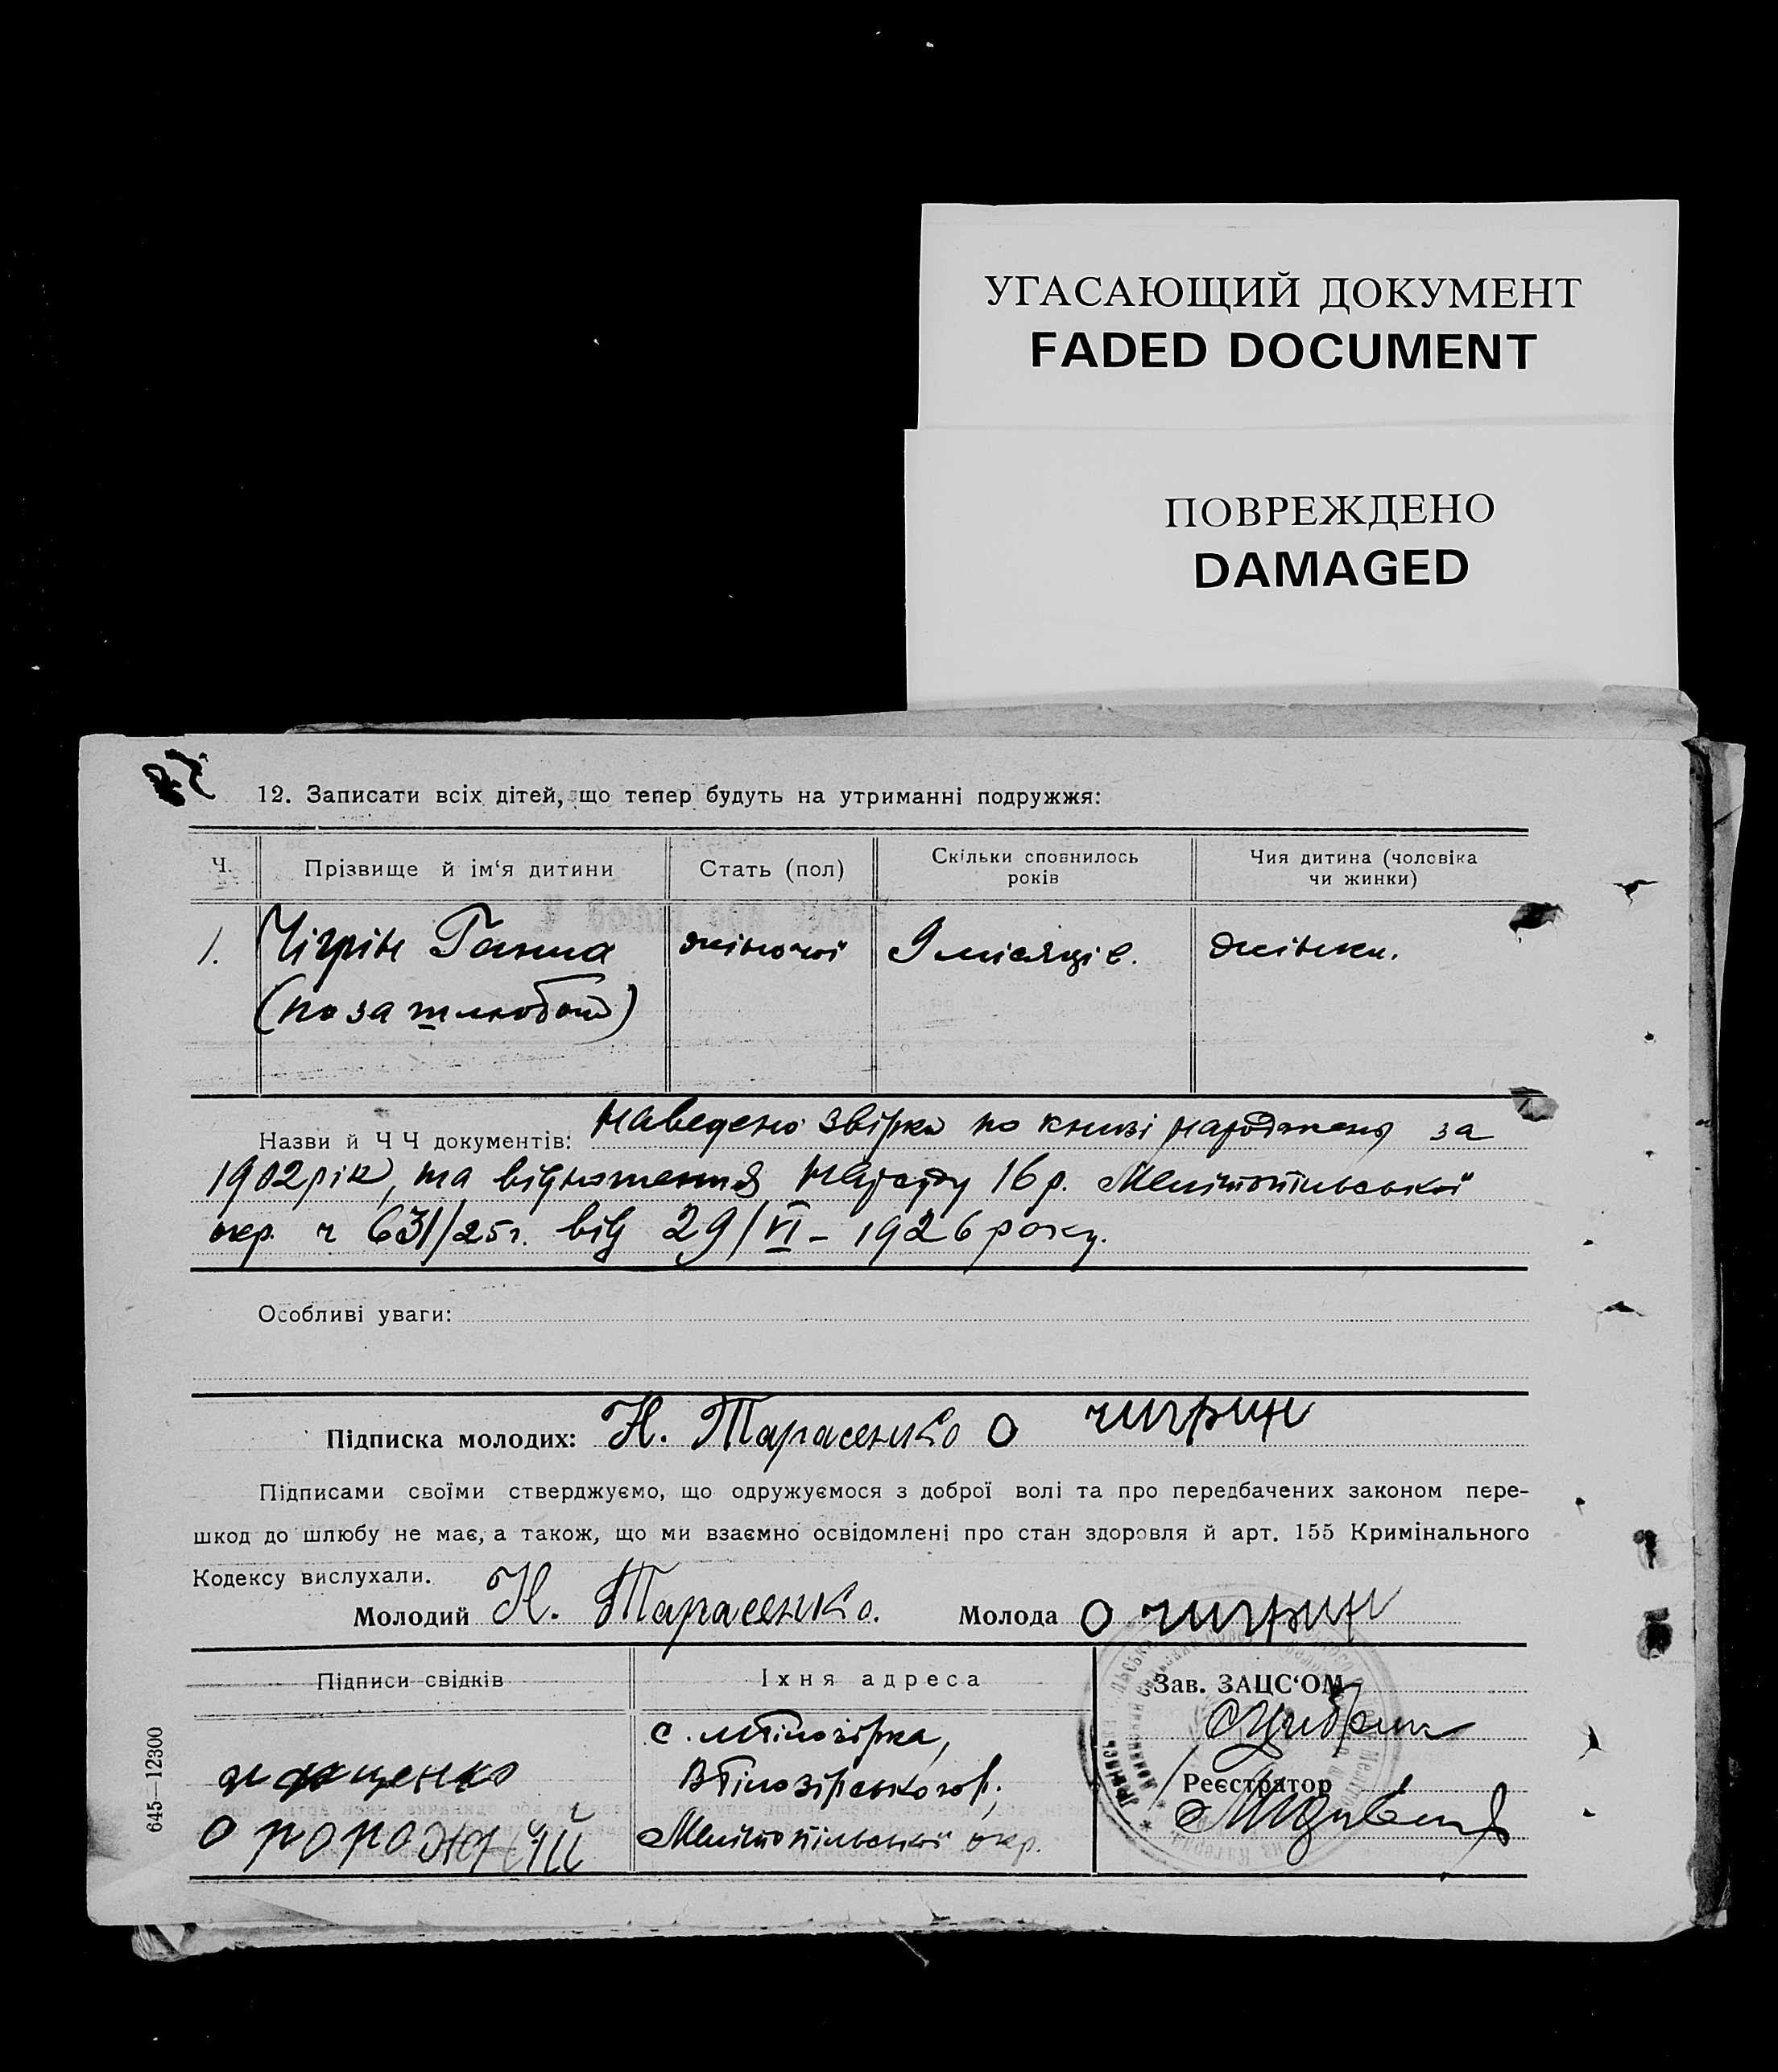 УГАСАЮЩИЙ ДОКУМЕНТ
FADED DOCUMENT
ПОВРЕЖДЕНО
DAMAGED
12. Записати всіх дітей, що тепер будуть на утриманні подружжя:
Ч. Прізвище й ім‘я дитини Стать (пол) Скільки сповнилось років Чия дитина (чоловіка чи жинки)
1. Чігрін Ганна жіночої 9 місяців. жінки.
(поза шлюбом)
Назви й ЧЧ документів: Наведено звірка по книзі народжень за
1902 рік, та відношення 16 р. Мелітопільської
окр. ч 631/25г. від 29/VI – 1926 року.
Особливі уваги:
Підписка молодих: Н. Тарасенко О чигрин
Підписами своїми стверджуємо, що одружуємося з доброї волі та про передбачених законом пере-
шкод до шлюбу не має, а також, що ми взаємно освідомлені про стан здоровля й арт. 155 Кримінального
Кодексу вислухали.
Молодий Н. Тарасенко. Молода О чигрин
Підписи свідків Їхня адреса Зав. ЗАЦС‘ОМ
с. мБілозірка,
ВБілозірського р. Реєстратор
Мелітопільської окр.
645—12300